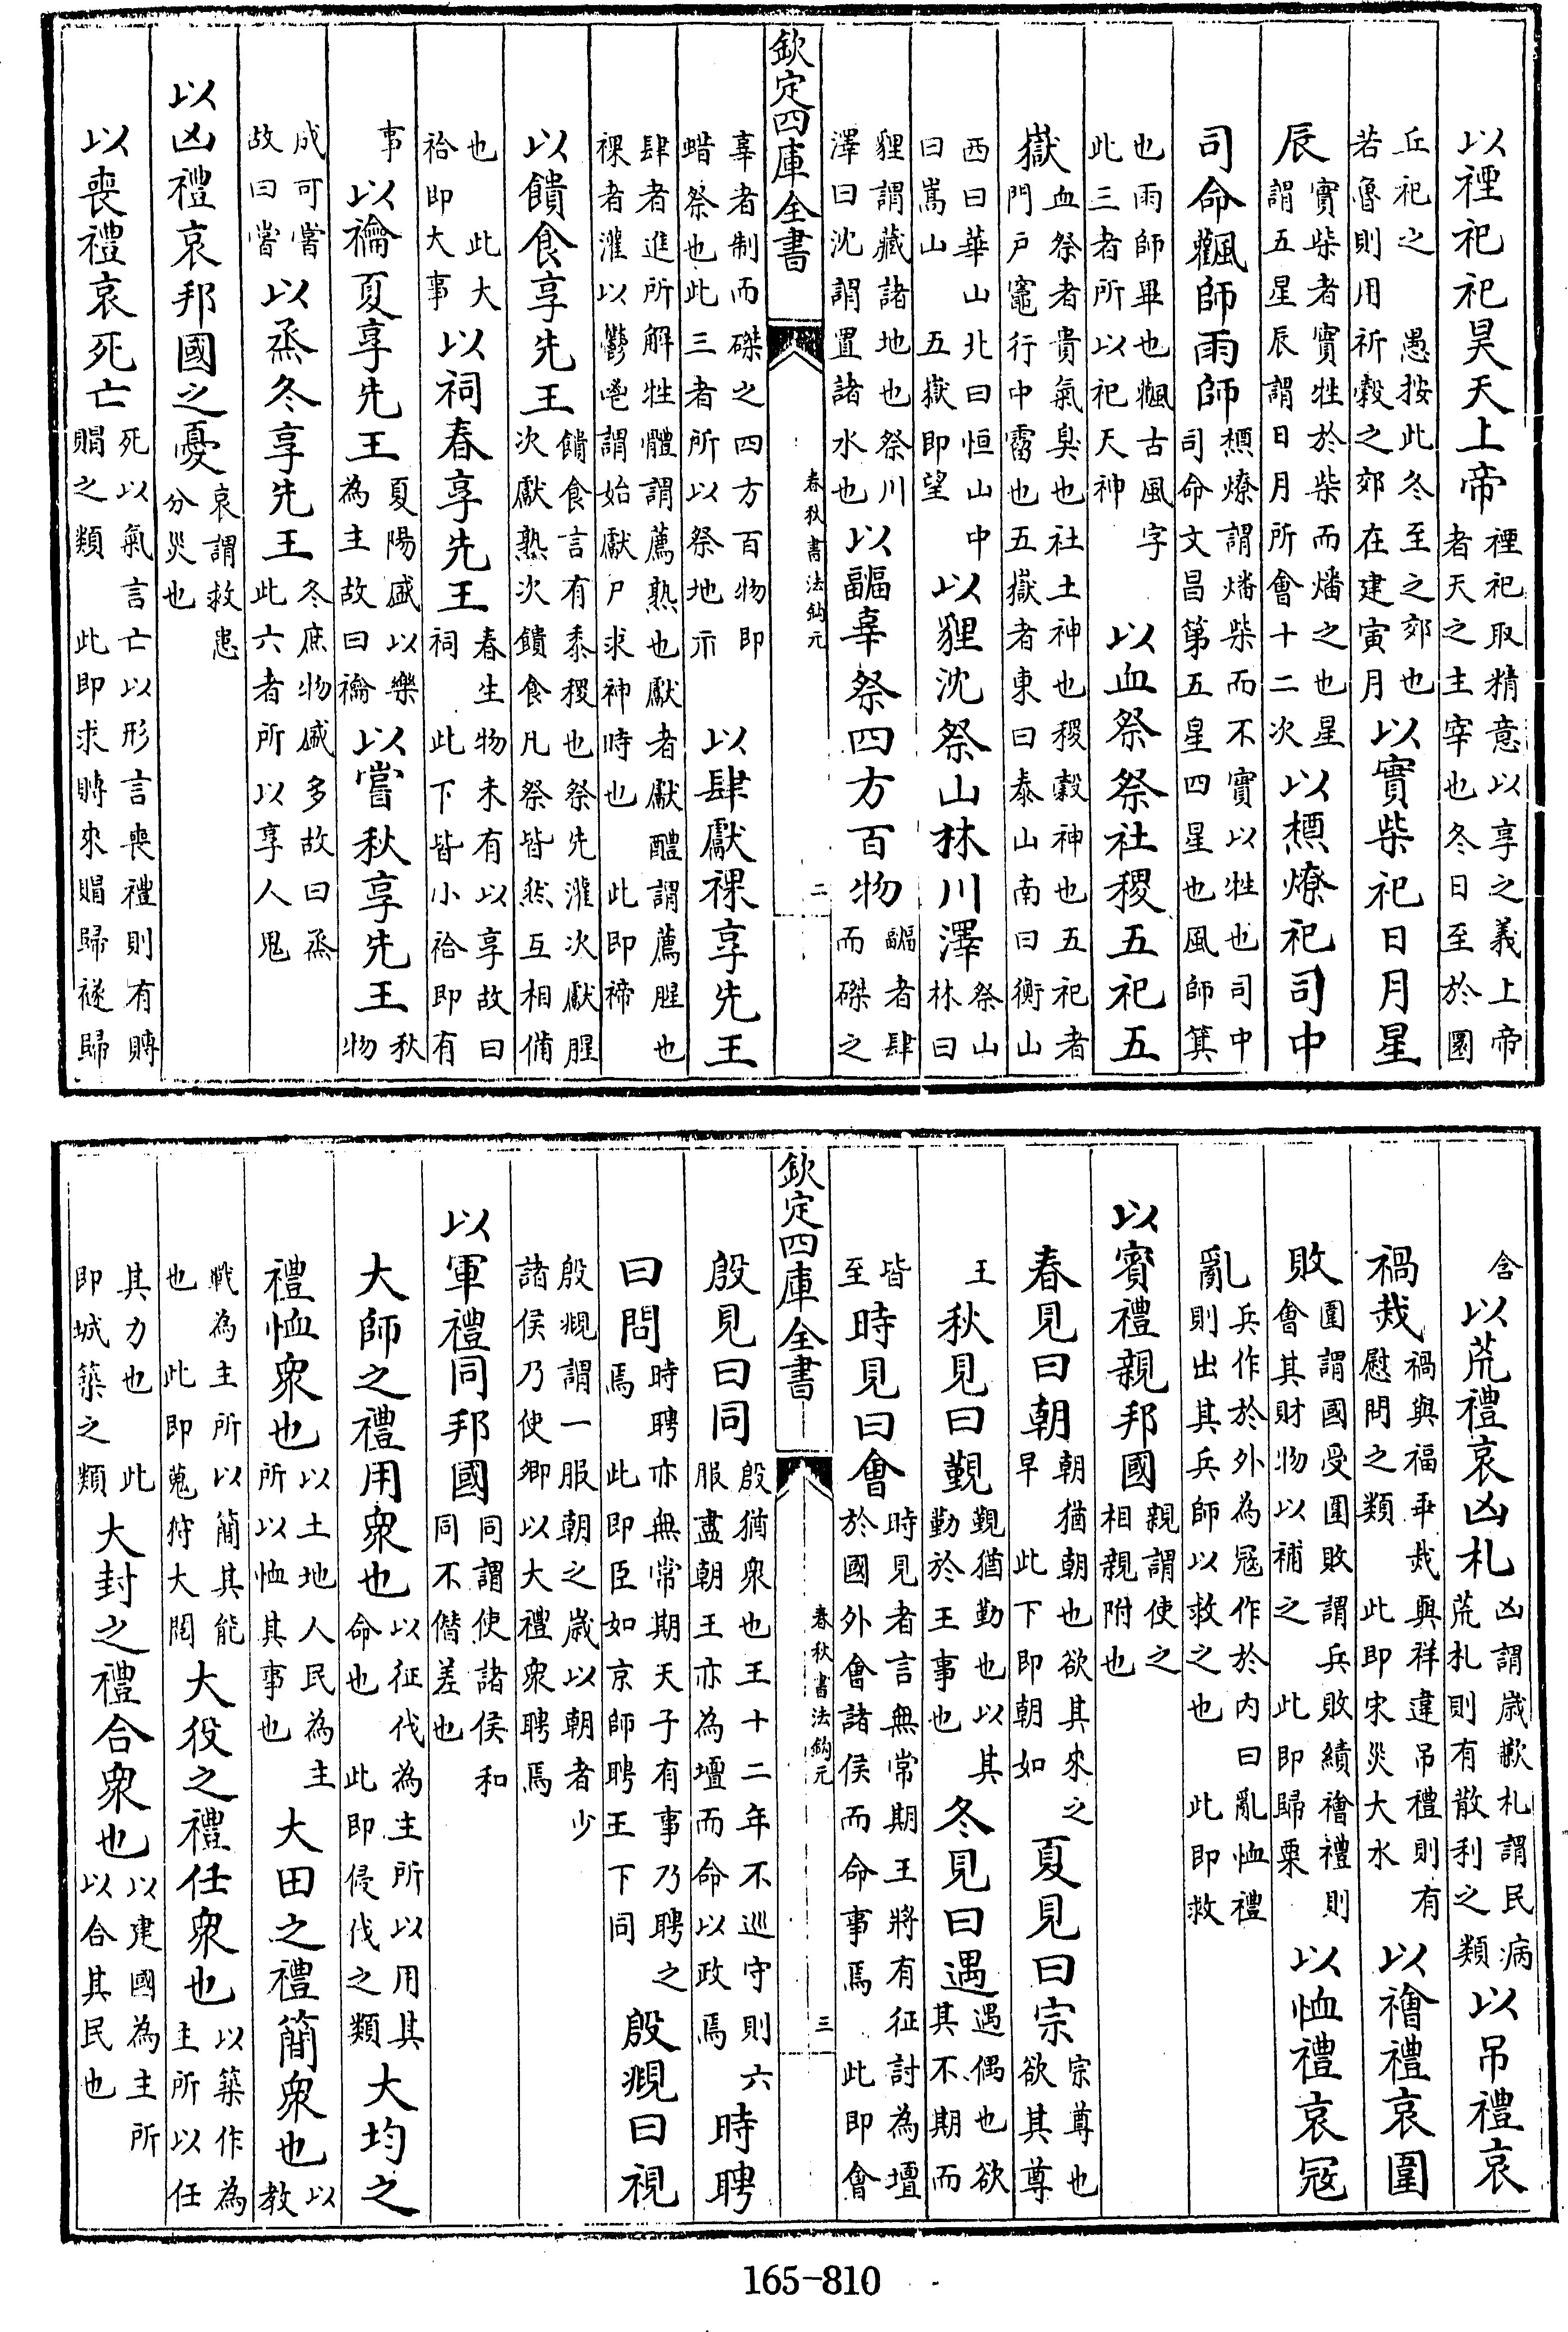 以禋祀祀昊天上帝禋祀取精意以享之義上帝者天之主宰也冬日至於圜
丘祀之 愚按此冬至之郊也若魯則用祈穀之郊在建寅月以實柴祀日月星
辰實柴者實牲於柴而燔之也星謂五星辰謂日月所會十二次以槱燎祀司中
司命飌師雨師槱燎謂燔柴而不實以牲也司中司命文昌第五星四星也風師箕
也雨師畢也飌古風字 此三者所以祀天神以血祭祭社稷五祀五
嶽血祭者貴氣臭也社土神也稷穀神也五祀者門戶竈行中霤也五嶽者東曰泰山南曰衡山
西曰華山北曰恒山中曰嵩山 五嶽即望以貍沈祭山林川澤祭山林曰
貍謂藏諸地也祭川澤曰沈謂置諸水也以疈辜祭四方百物疈者肆而磔之
欽定四庫全書 春秋書法鉤元 二
辜者制而磔之四方百物即蜡祭也此三者所以祭地示以肆獻祼享先王
肆者進所解牲體謂薦熟也獻者獻醴謂薦腥也祼者灌以鬱鬯謂始獻尸求神時也 此即禘
以饋食享先王饋食言有黍稷也祭先灌次獻腥次獻熟次饋食凡祭皆然互相備
也 此大祫即大事以祠春享先王春生物未有以享故曰祠 此下皆小祫即有
事以禴夏享先王夏陽盛以樂為主故曰禴以嘗秋享先王秋物
成可嘗故曰嘗以烝冬享先王冬庶物盛多故曰烝此六者所以享人鬼
以凶禮哀邦國之憂哀謂救患分災也
以喪禮哀死亡死以氣言亡以形言喪禮則有賻賵之類 此即求賻來賵歸襚歸
含以荒禮哀凶札凶謂歲歉札謂民病荒札則有散利之類以吊禮哀
禍烖禍與福乖烖與祥違吊禮則有慰問之類 此即宋災大水以禬禮哀圍
敗圍謂國受圍敗謂兵敗績禬禮則會其財物以補之 此即歸粟以恤禮哀寇
亂兵作於外為寇作於内曰亂恤禮則出其兵師以救之也 此即救
以賓禮親邦國親謂使之相親附也
春見曰朝朝猶朝也欲其來之早 此下即朝如夏見曰宗宗尊也欲其尊
王秋見曰覲覲猶勤也以其勤於王事也冬見曰遇遇偶也欲其不期而
皆至時見曰會時見者言無常期王將有征討為壇於國外會諸侯而命事焉 此即會
欽定四庫全書 春秋書法鉤元 三
殷見曰同殷猶衆也王十二年不巡守則六服盡朝王亦為壇而命以政焉時聘
曰問時聘亦無常期天子有事乃聘之焉 此即臣如京師聘王下同殷覜曰視
殷覜謂一服朝之歲以朝者少諸侯乃使卿以大禮衆聘焉
以軍禮同邦國同謂使諸侯和同不僭差也
大師之禮用衆也以征伐為主所以用其命也 此即侵伐之類大均之
禮恤衆也以土地人民為主所以恤其事也大田之禮簡衆也以教
戰為主所以簡其能也 此即蒐狩大閱大役之禮任衆也以築作為主所以任
其力也 此即城築之類大封之禮合衆也以建國為主所以合其民也
165-810